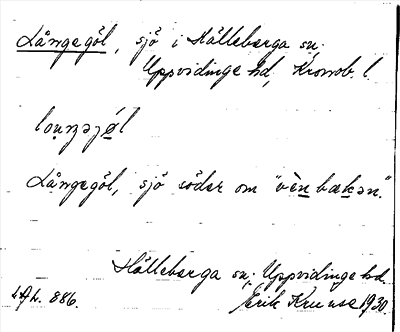 Långegöl, sjö i Hälleberga sn,
Uppvidinge hd, Kronob. l.
Långegöl, sjö söder om "vèn bakən."
Hälleberga sn, Uppvidinge hd.
886. Erik Kruuse 1930.